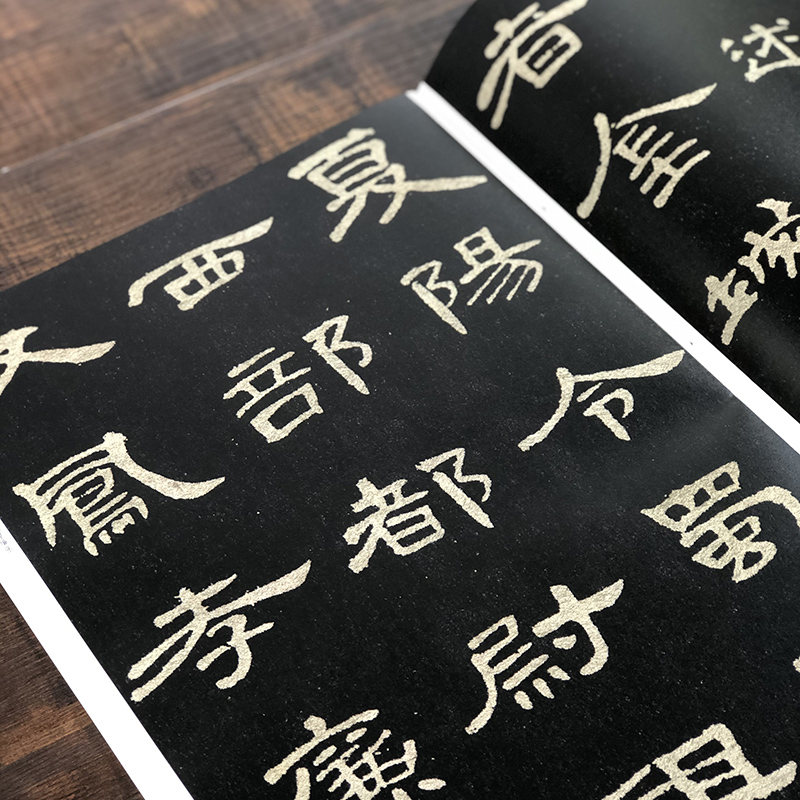 述
者金城
夏陽令蜀
西部都尉
父鳳孝廉